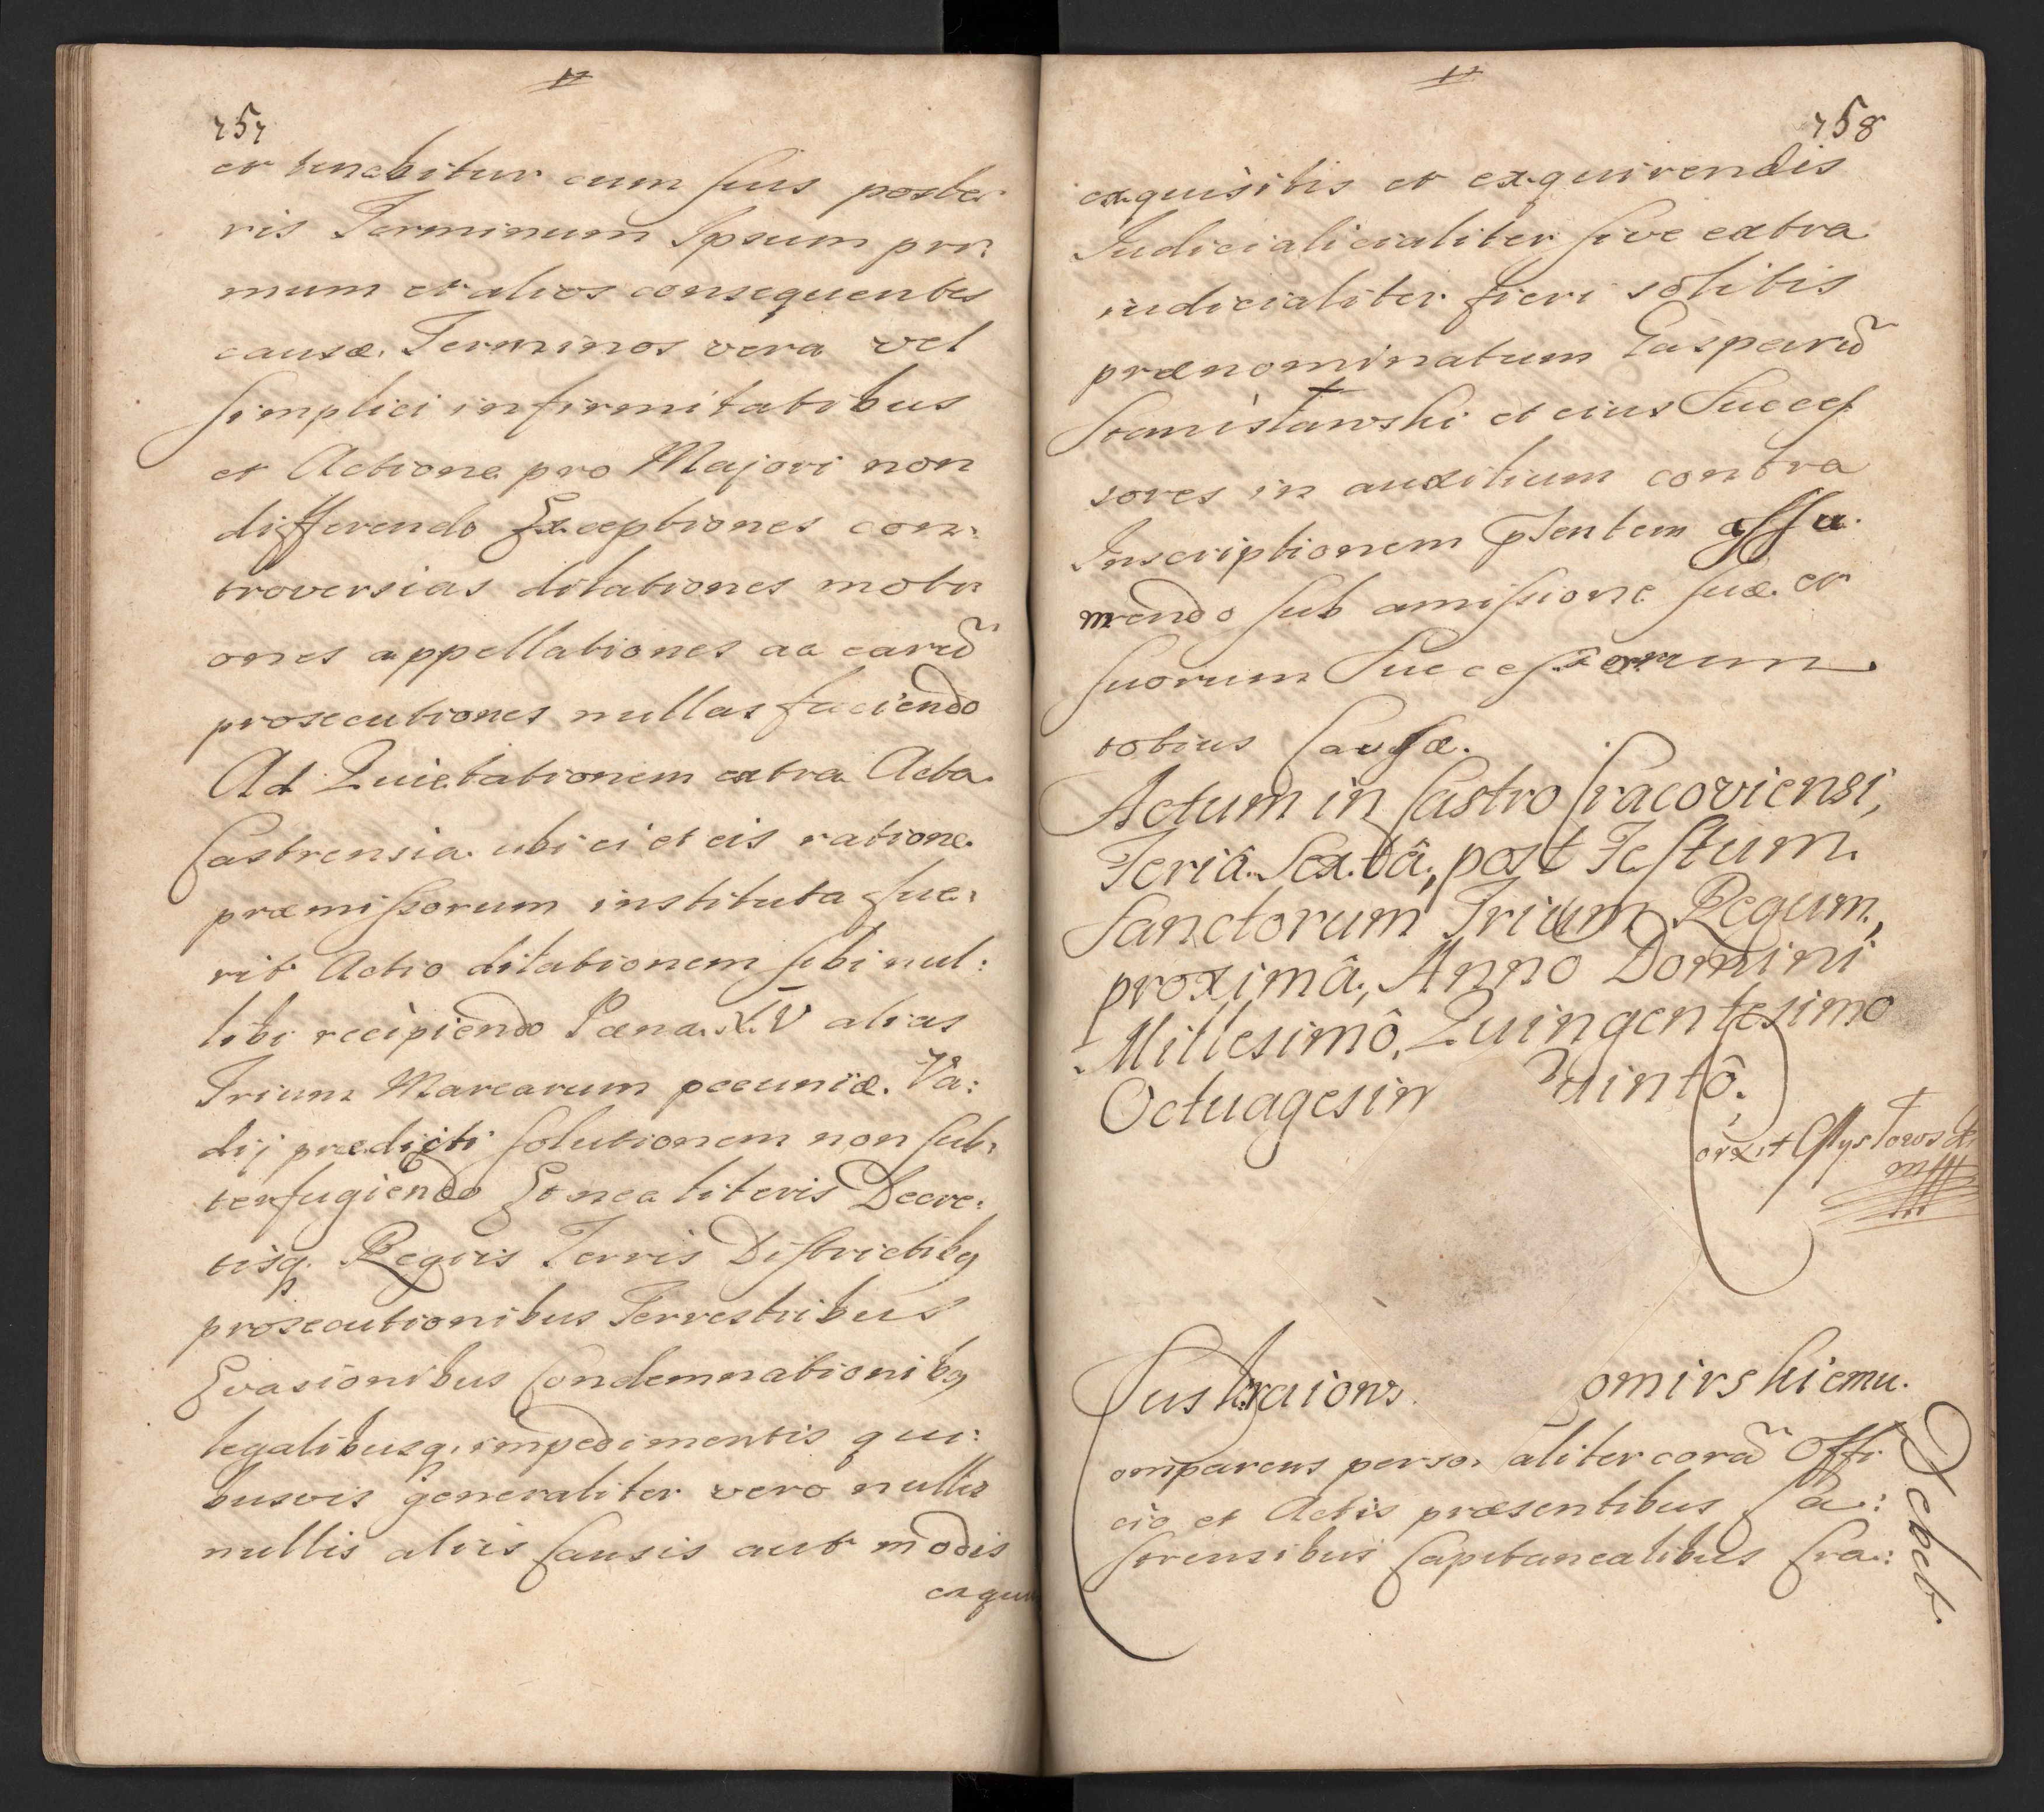 757
et tenebitur cum suis poste
ris Terminum Ipsum pri:
mum et alios consequentes
causæ. Terminos vera vel
simplici infirmitatibus
et Actione pro Majori non
differendo Exceptiones con:
troversias dilationes moti
ones appellationes ac earū
prosecutiones nullas faciendo
Ad Quietationem extra Acta
Castrensia ubi ei et eis ratione
præmissorum instituta fue:
rit Actio dilationem sibi nul:
libi recipiendo Pæna XIV alias
Trium Marcarum pecuniæ. Va:
dij prædicti solutionem non sub:
terfugiendo Et nea literis Decre:
tisq. Regvis Terris Districtibq
prosecutionibus Terrestribus
Evasionibus Condemnationibq
legalibusq. impedimentis qui:
busvis generaliter vero nullis
nullis aliis Causis aut modis
exqui
758
exquisitis et exquirendis
Iudicialicialiter sive extra
iudicialiter fieri solitis
prænominatum Casparū
Stanisławski et eius Succes
sores in auxilium contra
Inscriptionem pntentem assu
mendo sub amissione suæ et
suorum Successorum
totius Causæ.
Actum in Castro Cracoviensi,
Feriâ Sextâ, post Festum
Sanctorum Trium Regum,
proximâ, Anno Domini
Millesimô, Quingentesimo
Octuagesim uintô.
Sustkaiows omirskiemu.
omparens perso aliter corā Offi
cio et Actis præsentibus Ca:
strensibus Capitanealibus Cra:
Debet.